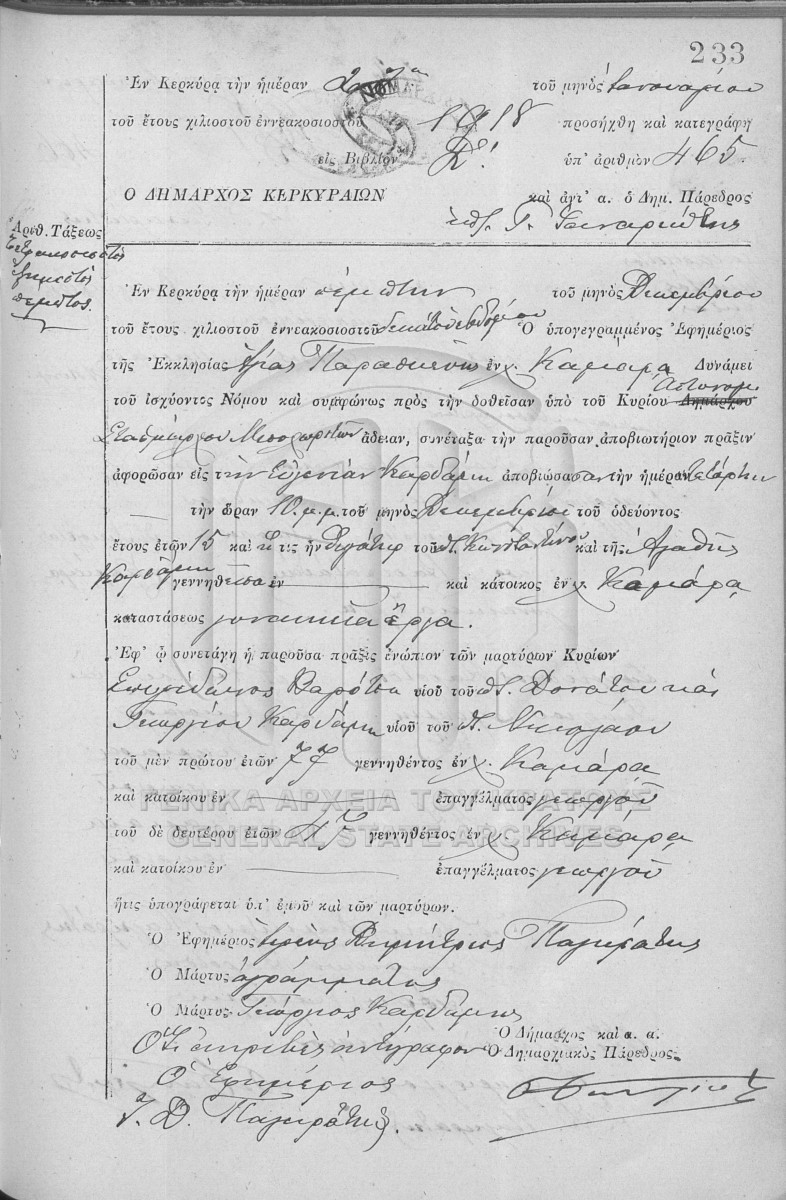 233
Ἐν Κερκύρᾳ τὴν ἡμέραν τοῦ μηνὸς Ἰανουαρίου
τοῦ ἔτους χιλιοστοῦ ἐννεακοσιοστοῦ 1918 προσήχθη καὶ κατεγράφη
εἰς Βιβλίον Δ! ὑπ' ἀριθμὸν 465.
Ο ΔΗΜΑΡΧΟΣ ΚΕΡΚΥΡΑΙΩΝ καὶ ἀντ' α. ὁ Δημ. Πάρεδρος
Ἀριθ. Τάξεως
Τετρακοσιοστὸς
ἑξηκοστὸς
πέμπτος.
Ἐν Κερκύρᾳ τὴν ἡμέραν πέμπτην τοῦ μηνὸς Δεκεμβρίου
τοῦ ἔτους χιλιοστοῦ ἐννεακοσιοστοῦ δεκάτου ἑβδόμου Ὁ ὑπογεγραμμένος Ἐφημέριος
τῆς Ἐκκλησίας Ἁγίας Παρασκευῆς ἐν χ. Καμάρα Δυνάμει
τοῦ ἰσχύοντος Νόμου καὶ συμφώνως πρὸς τὴν δοθεῖσαν ὑπὸ τοῦ Κυρίου Δημάρχου Ἀστυνομ.
Σταθμάρχου ἄδειαν, συνέταξα τὴν παροῦσαν ἀποβιωτήριον πρᾶξιν
ἀφορῶσαν εἰς τὴν Εὐγενίαν Καρδάμη ἀποβιώσασαν τὴν ἡμέραν τετάρτην
τὴν ὥραν 10 μ.μ. τοῦ μηνὸς Δεκεμβρίου τοῦ ὁδεύοντος
ἔτους ἐτῶν 15 καὶ ἥτις ἦν θυγάτηρ τοῦ Κωνσταντίνου καὶ τῆς Ἀγαθῆς
Καρδάμη γεννηθεῖσα ἐν καὶ κάτοικος ἐν χ. Καμάρα
καταστάσεως γυναικεῖα ἔργα.
Ἐφ' ᾧ συνετάγη ἡ παροῦσα πρᾶξις ἐνώπιον τῶν μαρτύρων Κυρίων
Σπυρίδωνος Βαρότση υἱοῦ τοῦ π. Δονάτου καὶ
Γεωργίου Καρδάμη υἱοῦ τοῦ π. Νικολάου
τοῦ μὲν πρώτου ἐτῶν 77 γεννηθέντος ἐν χ. Καμάρα
καὶ κατοίκου ἐν ἐπαγγέλματος γεωργοῦ
ΓΕΝΙΚΑ ΑΡΧΕΙΑ ΤΟΥ ΚΡΑΤΟΥΣ
τοῦ δὲ δευτέρου ἐτῶν 47 γεννηθέντος ἐν χ. Καμάρα
GENERAL STATE ARCHIVES
καὶ κατοίκου ἐν ἐπαγγέλματος γεωργοῦ
ἥτις ὑπογράφεται ὑπ' ἐμοῦ καὶ τῶν μαρτύρων.
Ὁ Ἐφημέριος ἱερεὺς Δημήτριος Παγκράτης
Ὁ Μάρτυς ἀγράμματος
Ὁ Μάρτυς Γεώργιος Καρδάμης
Ὅτι ἀκριβὲς ἀντίγραφον
Ὁ Δήμαρχος καὶ α. α.
Ὁ Δημαρχιακὸς Πάρεδρος
Ὁ Ἐφημέριος
Ἱ. Δ. Παγκράτης.